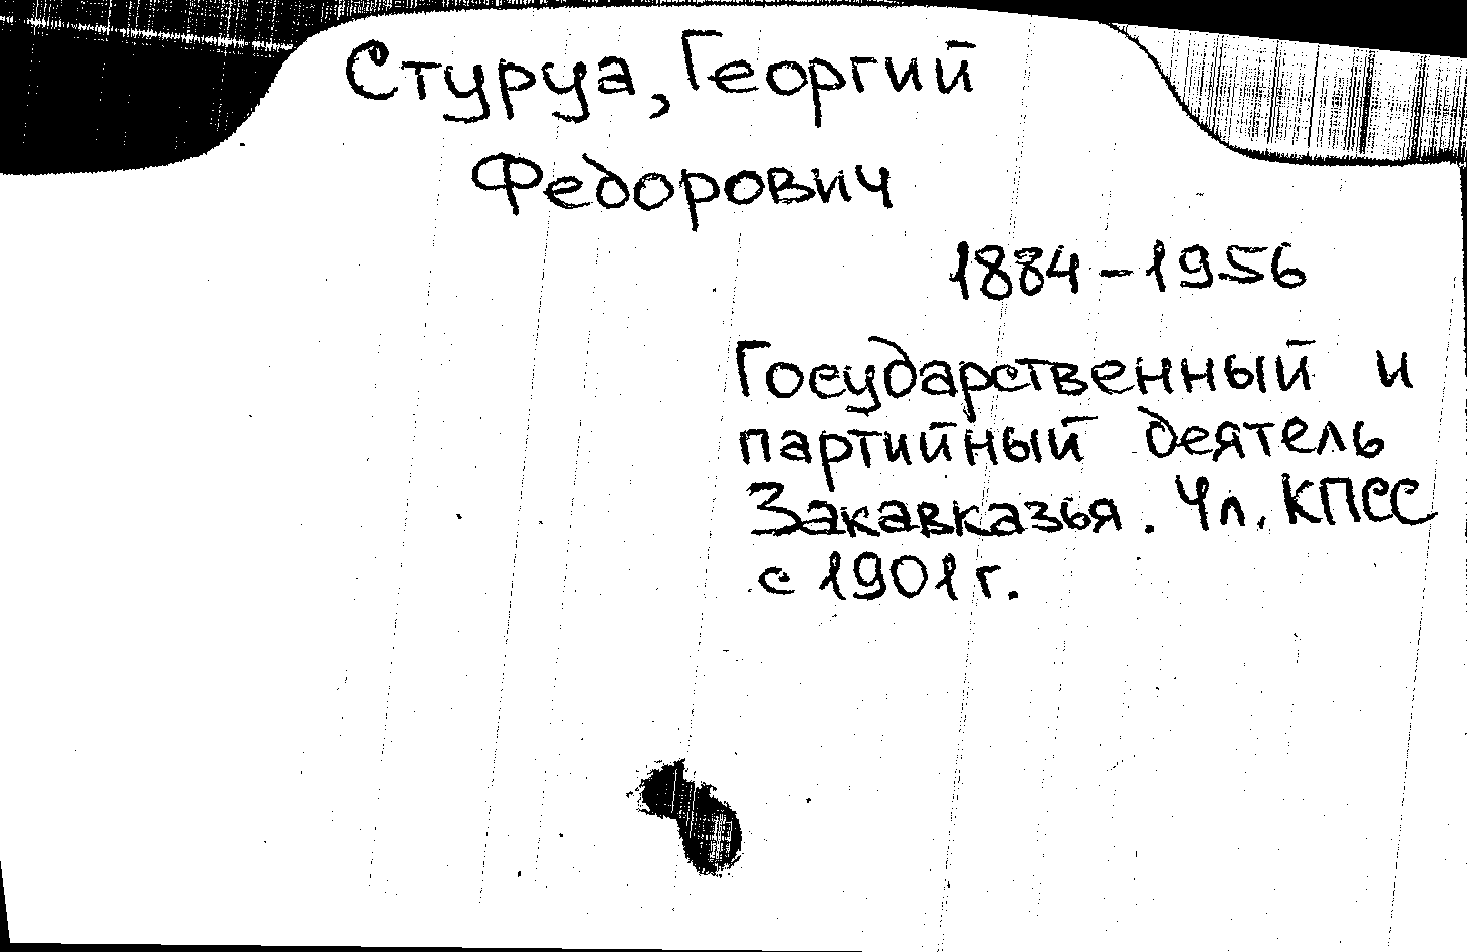 Стуруа, Георгий
Федорович
1884-1956
Государственный и
партийный деятель
Закавказья. Чл. КПСС
с 1901 г.